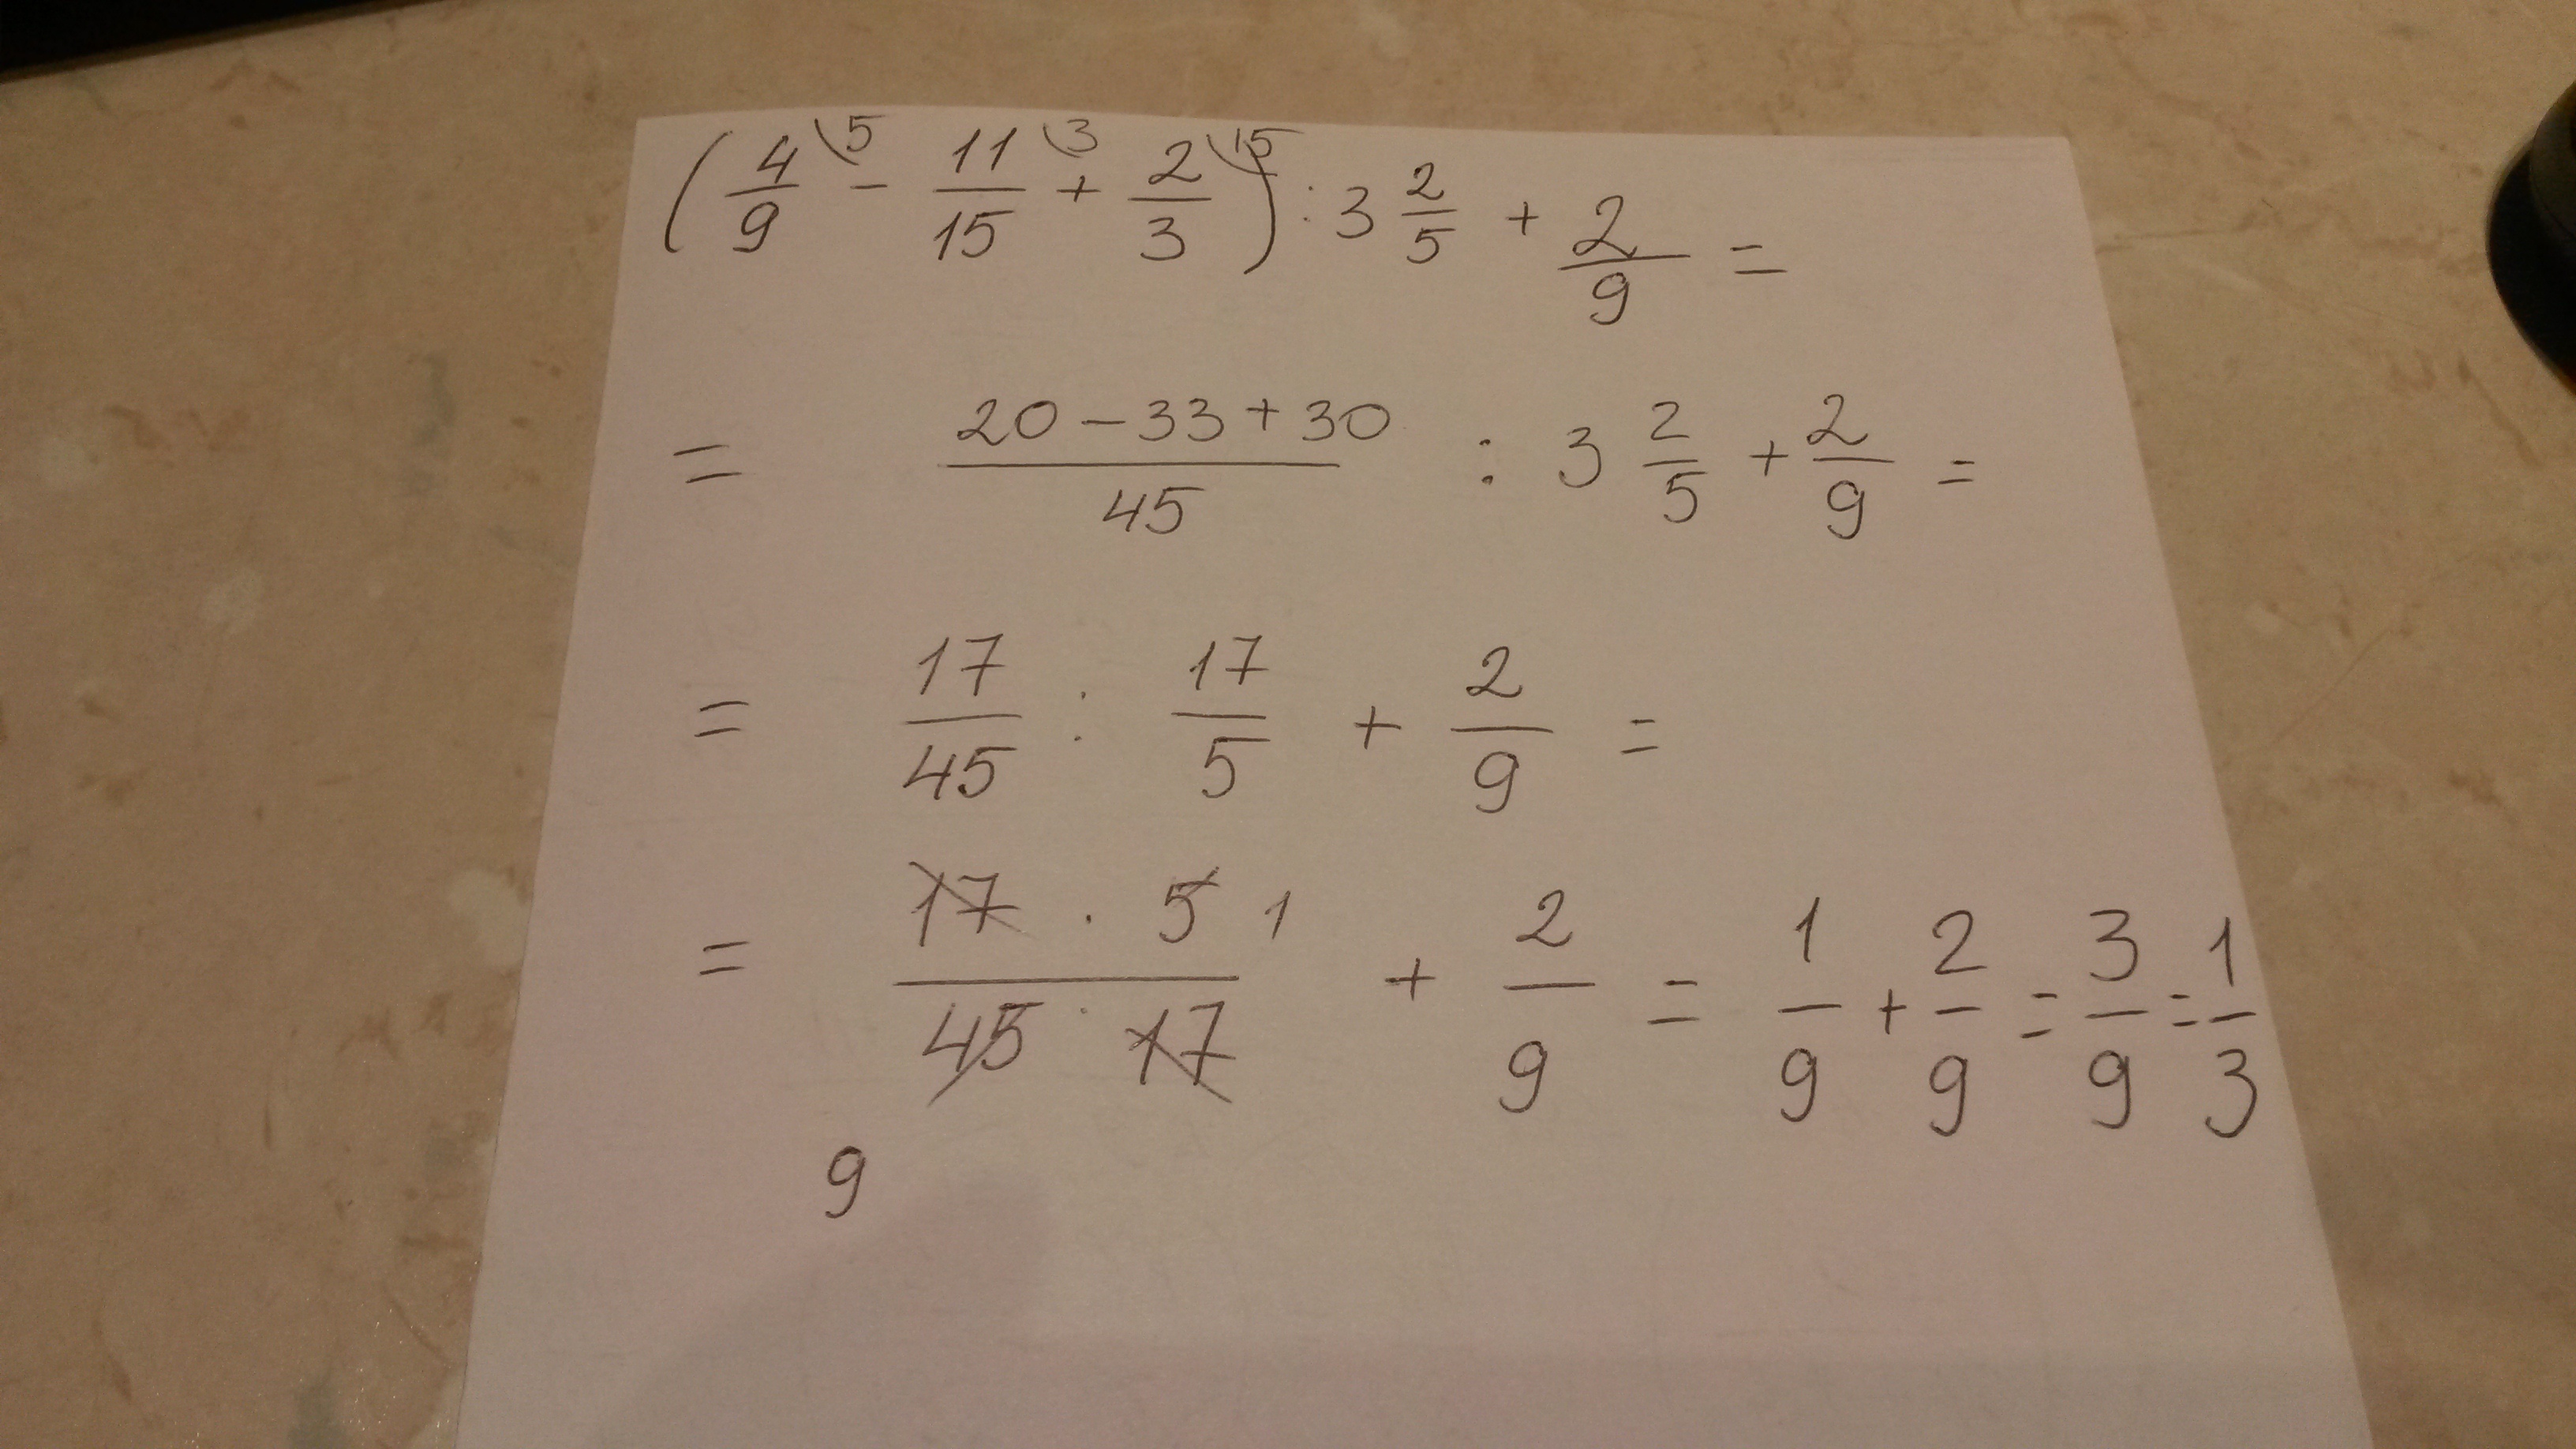 (4/9 \5 - 11/15 \3 + 2/3 \15) : 3 2/5 + 2/9 =
= (20 - 33 + 30)/45 : 3 2/5 + 2/9 =
= 17/45 : 17/5 + 2/9 =
= (17 · 5 1)/(45 · 17) + 2/9 = 1/9 + 2/9 = 3/9 = 1/3
9